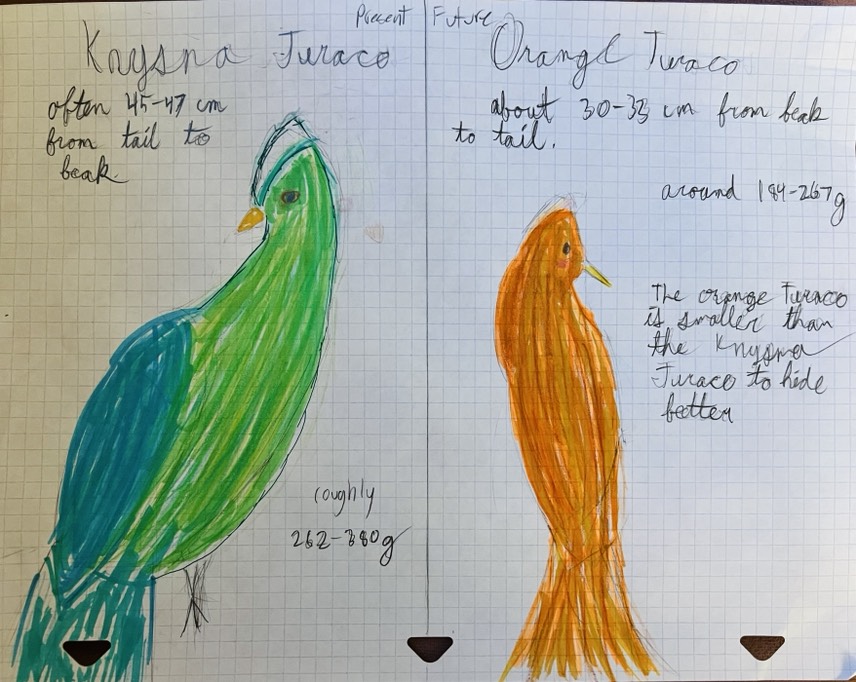 Present
Knysna Turaco
often 45-47 cm
from tail to
beak.
roughly
262-380g
Future
Orange Turaco
about 30-33 cm from beak
to tail.
around 184-267g
The orange Turaco
is smaller than
the Knysna
Turaco to hide
better